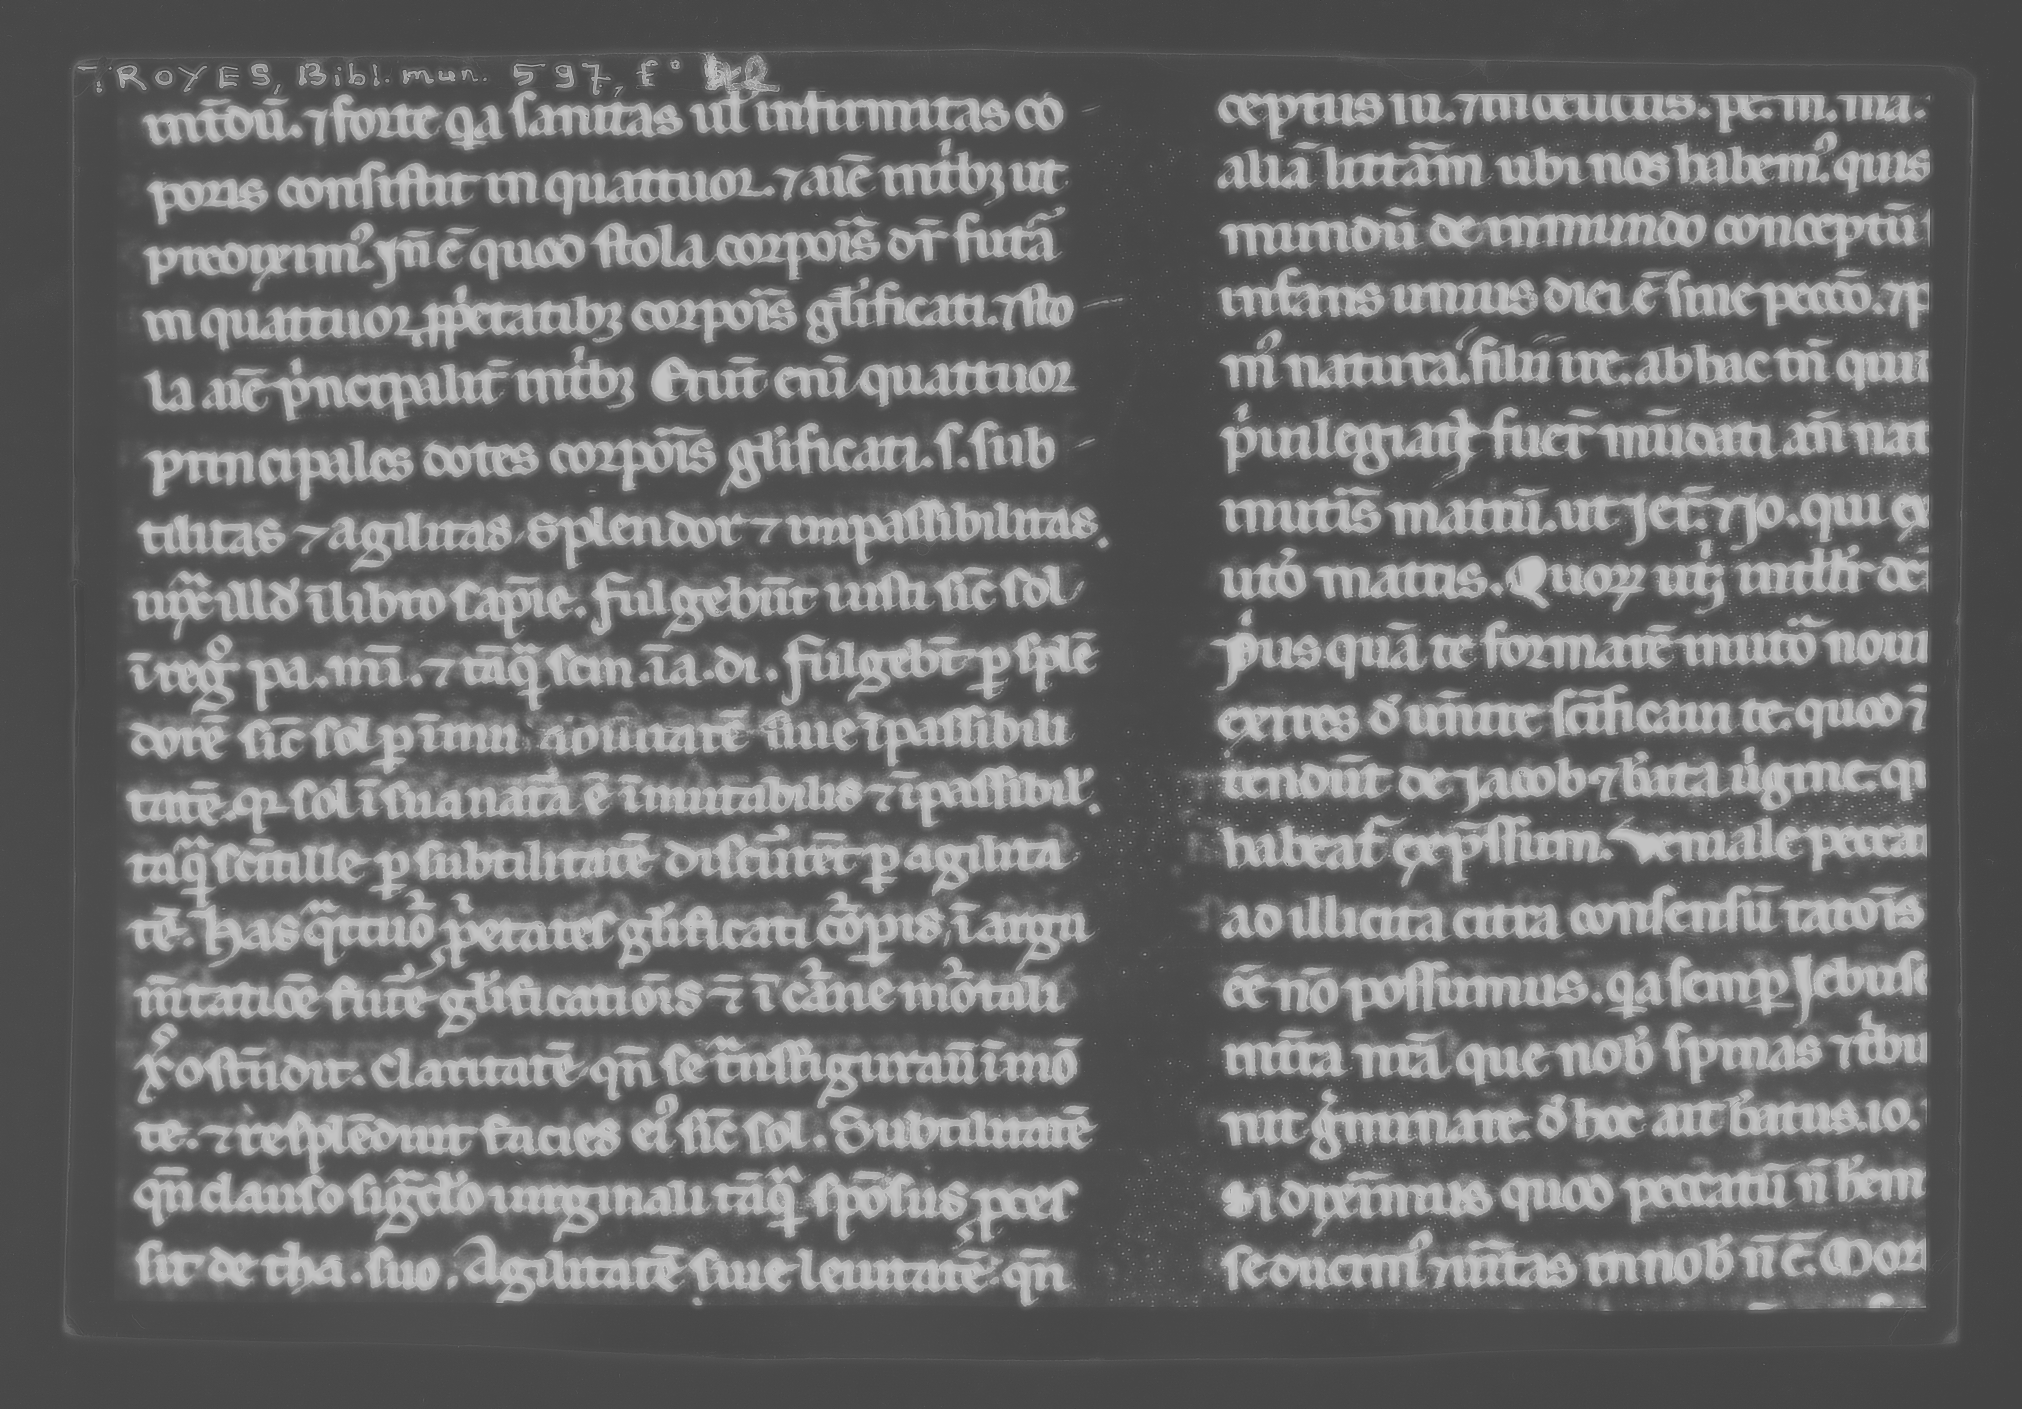 TROYES, Bibl. mun. 597, f°
int̄dū. ⁊ forte qͣa sanitas ul̄ infirmitas co
poris consistit in quattuor. ⁊ aīe mībꝫ ut
predixim᾽. Jn̄ ē quod stola corporis dr̄ futā
in quattuor ꝓp̍etatibꝫ corporis gl̄ificati. ⁊ sto
la aīe p̍ncipalit̄ mībꝫ Erūt enī quattuor
principales dotes corporis gl̄ificati. s. sub
tilitas ⁊ agilitas splendor ⁊ impassibilitas.
iux̄ illð ī libro sap̄ie. fulgebūt iusti sic̄ sol
ī reg᷒ pa. mī. ⁊ tāqͣ scin. ī a. di. fulgebt̄ ꝑ splē
dorē sic̄ sol ꝑ īmu siue īpassibili
tatē. qꝛ sol ī sua natā ē īmutabilis ⁊ īpassibil᾽.
tāqͣ scītille ꝑ subtilitatē discurrēt ꝑ agilita
tē. has qͣttuor ꝓp̍etates gl̄ificati corpis, ī argu
m̄tatiōe future gl̄ificationis ⁊ ī carne mortali
xp̄c ostn̄dit. claritatē qn̄ se tͣnsfigurauit ī mō
te. ⁊ resplēduit facies ei᾽ sic̄ sol. Subtilitatē
qn̄ clauso sigͣclo uirginali tāqͣ spōsus pces
sit de tha. suo. Agilitatē siue leuitatē qn̄
ceptus in. ⁊ in delictis. pe. m. ma.
aliā litt̄am ubi nos habem᾽. quis
mundū de inmundo conceptū
infans unius diei ē sine pecco. ⁊ p
m᾽ natura. filii ire. ab hac tn̄ qui
p̍uilegiatꝫ fuer̄ mūdati an̄ nat
in utis̄ matrū. ut Jer̄. ⁊ Jo. qui ex
uto᷒ matris. Quoꝝ utꝫ intll̄r de
p̍us quā te formarē in uto᷒ noui
exires ð uūtre scīficaui te. quod
tendūt de Jacob ⁊ b̄ata u̍gine. qi
habeat᷒ exp̄ssum. Veniale peccat
ad illicita citra consensū rationis
ēe nō possumus. qͣa semꝑ Jebuse
n̄ra mā que nob᾽ spinas ⁊ t̍bu
nit g̍minare. ð hoc ait b̄atus. io.
Si dixerimus quod peccatū n̄ h̄em
seducim᾽ ⁊ uītas in nob᾽ n̄ ē. Mor